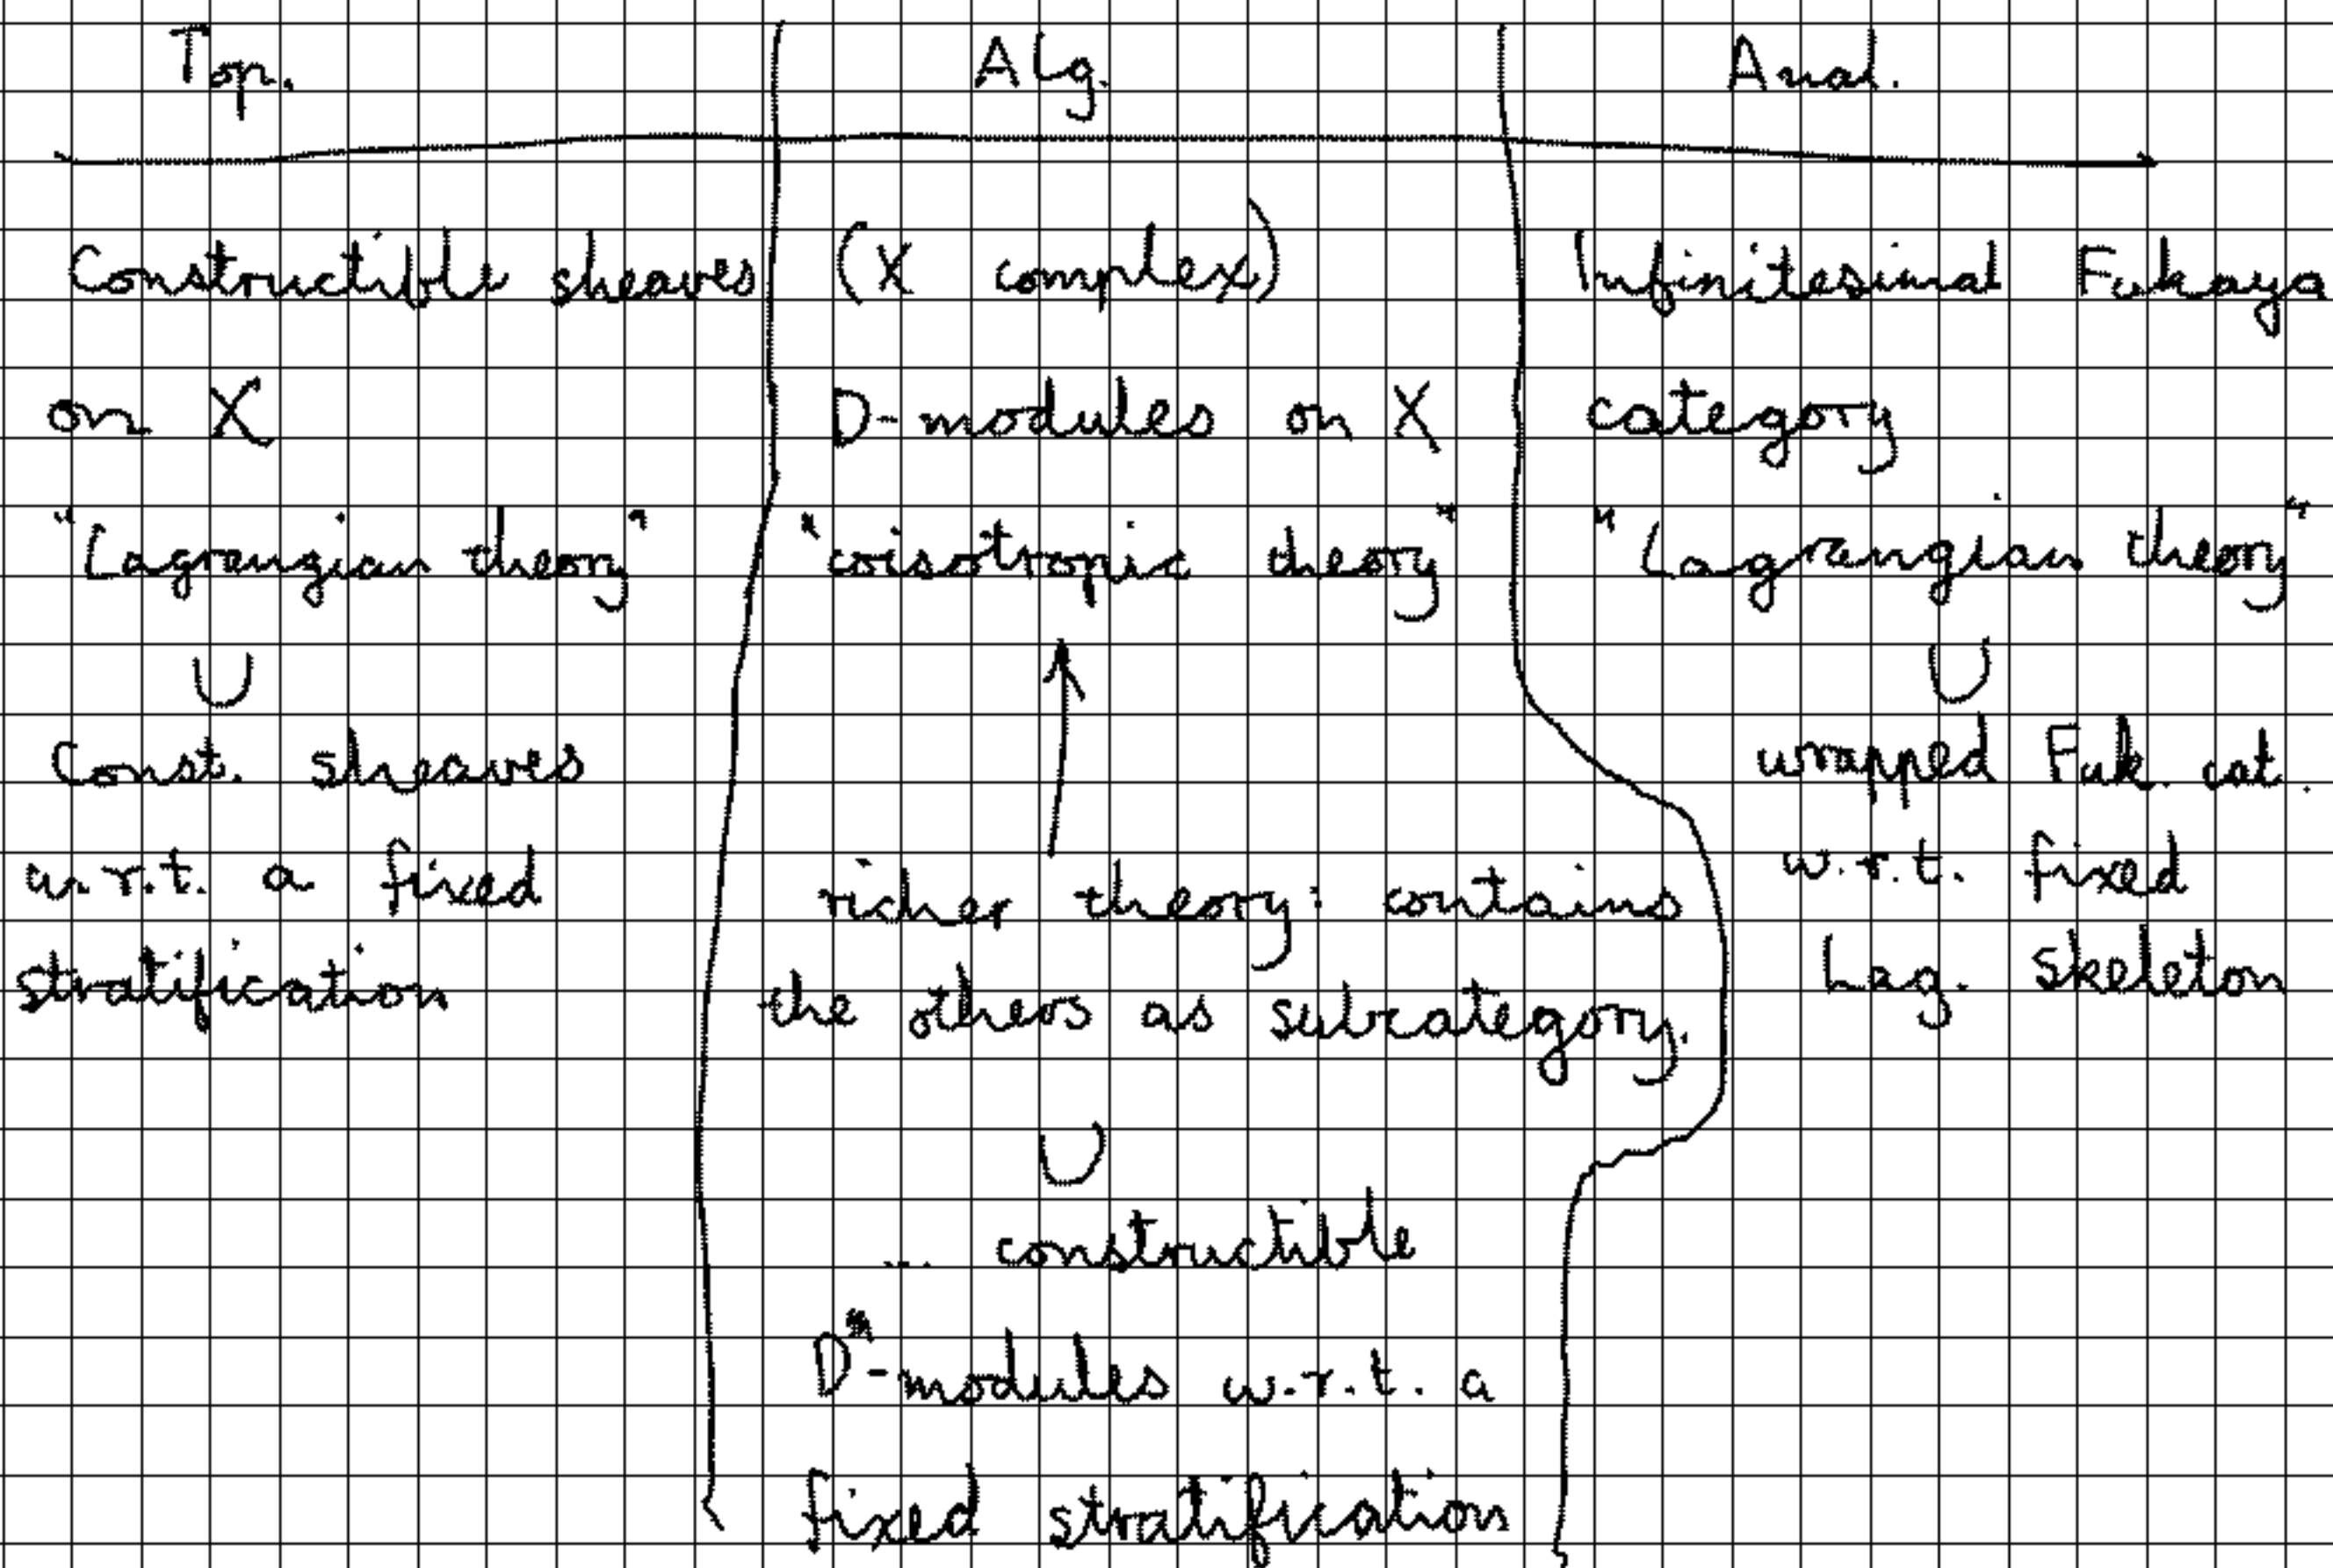 Top.
Constructible sheaves
on X
"Lagrangian theory"
∪
Const. sheaves
w.r.t. a fixed
stratification
Alg.
(X complex)
D-modules on X
"coisotropic theory"
↑
richer theory: contains
the others as subcategory.
∪
... constructible
D-modules w.r.t. a
fixed stratification
Anal.
Infinitesimal Fukaya
category
"Lagrangian theory"
∪
wrapped Fuk. cat.
w.r.t. fixed
Lag. skeleton